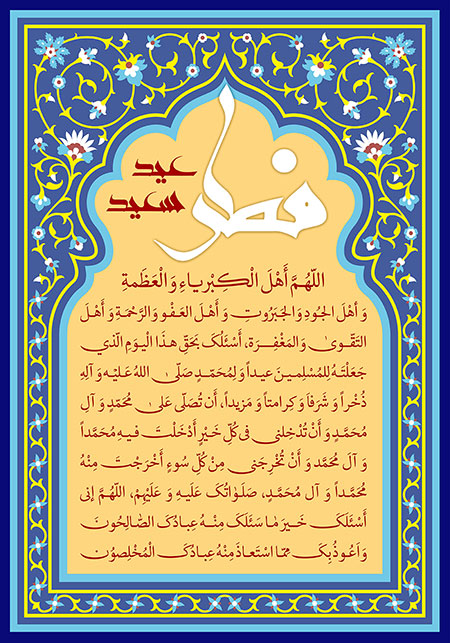 عيد
سعيد
فطر
اللّهُمَّ أَهْلَ الْكِبْرِياءِ وَالْعَظَمةِ
وَ أهْلَ الجُودِ وَالجَبَرُوتِ وَ أهْلَ العَفْوِ وَالرَّحْمَةِ وَ أهْلَ
التَقْوىٰ وَالمَغْفِرَة، أَسْئَلُکَ بِحَقِّ هذَا الْيَومِ الَّذي
جَعَلْتَهُ لِلْمُسْلِمينَ عيداً وَ لِمُحَمَّدٍ صَلَّى اللهُ عَلَيْه وَ آلِهِ
ذُخْراً وَ شَرَفاً وَ كِرامَتاً وَ مَزيداً، أَن تُصَلّىَ عَلىٰ مُحَمّدٍ وَ آلِ
مُحَمَّدٍ وَ أنْ تُدْخِلنى فى كُلِّ خَيْرٍ أدْخَلْتَ فيهِ مُحَمَّداً
وَ آلَ مُحَمَّد وَ أنْ تُخْرِجَنى مِنْ كُلِّ سُوءٍ أَخْرَجْتَ مِنْهُ
مُحَمَّداً وَ آلَ مُحَمَّد، صَلَوٰاتُکَ عَلَيهِ وَ عَلَيْهِمْ، اللّهُمَّ إنى
أَسْئَلُکَ خَيرَ مٰا سَئَلَکَ مِنْهُ عِبادُکَ الصّالِحُونَ
وَ اَعُوذُ بِکَ مِمَّا اسْتَعاذَ مِنْهُ عِبادُکَ الْمُخْلِصُوْن